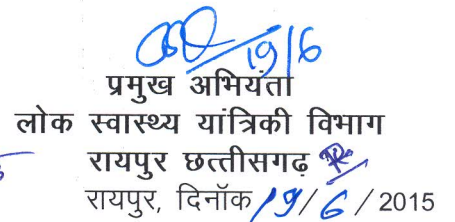 19/6
प्रमुख अभियंता
लोक स्वास्थ्य यांत्रिकी विभाग
रायपुर छत्तीसगढ़
रायपुर, दिनॉक 19/6/2015